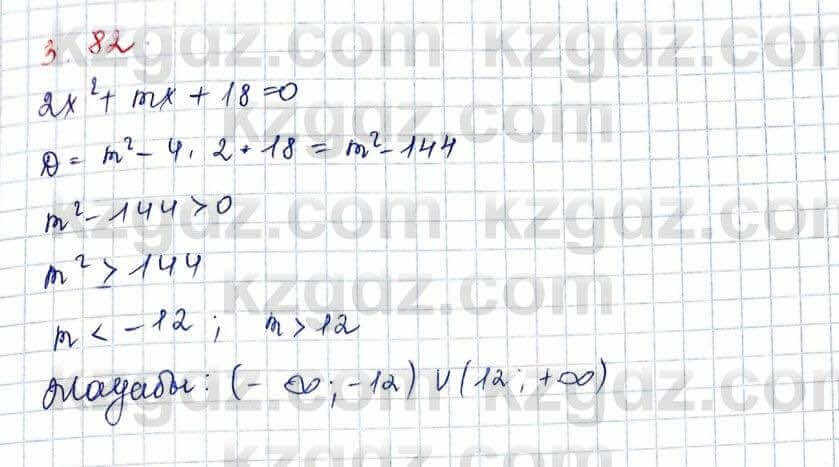 3.82
2x²+ mx + 18=0
D = m²- 4 · 2 · 18 = m²-144
m²-144>0
m² ≥ 144
m < -12 ; m > 12
Жауабы: (- ∞; -12) ∪ (12; +∞)
kzgdz.com kzgdz.com
kzgdz.com
kzgdz.com kzgdz.com
kzgdz.com
kzgdz.com kzgdz.com
kzgdz.com